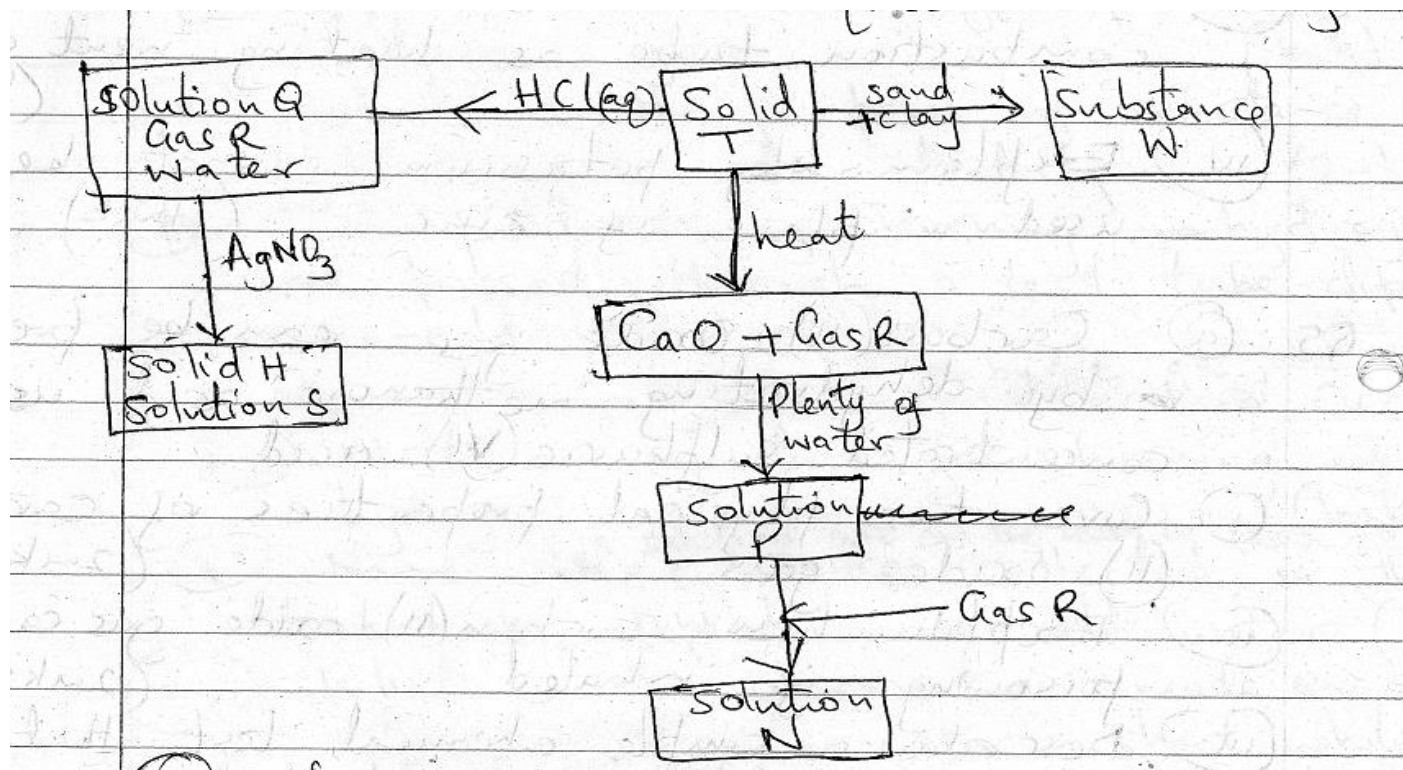 Solution Q
Gas R
Water
HCl(aq)
Solid
T
sand
+clay
Substance
W.
AgNO3
heat
Solid H
Solution S
CaO + Gas R
Plenty of
water
Solution
P
Gas R
Solution
N